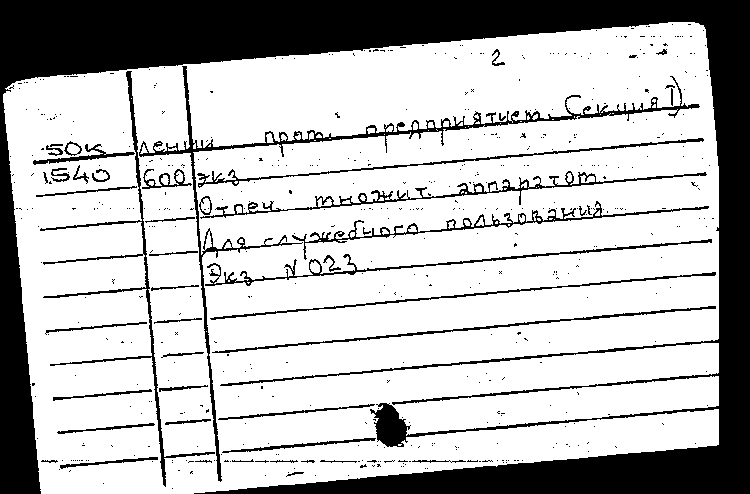 2
50к лении пром. предприятием. Секция I)
1540 600 экз.
Отпеч. множит. аппаратом.
Для служебного пользования
Экз. N 023